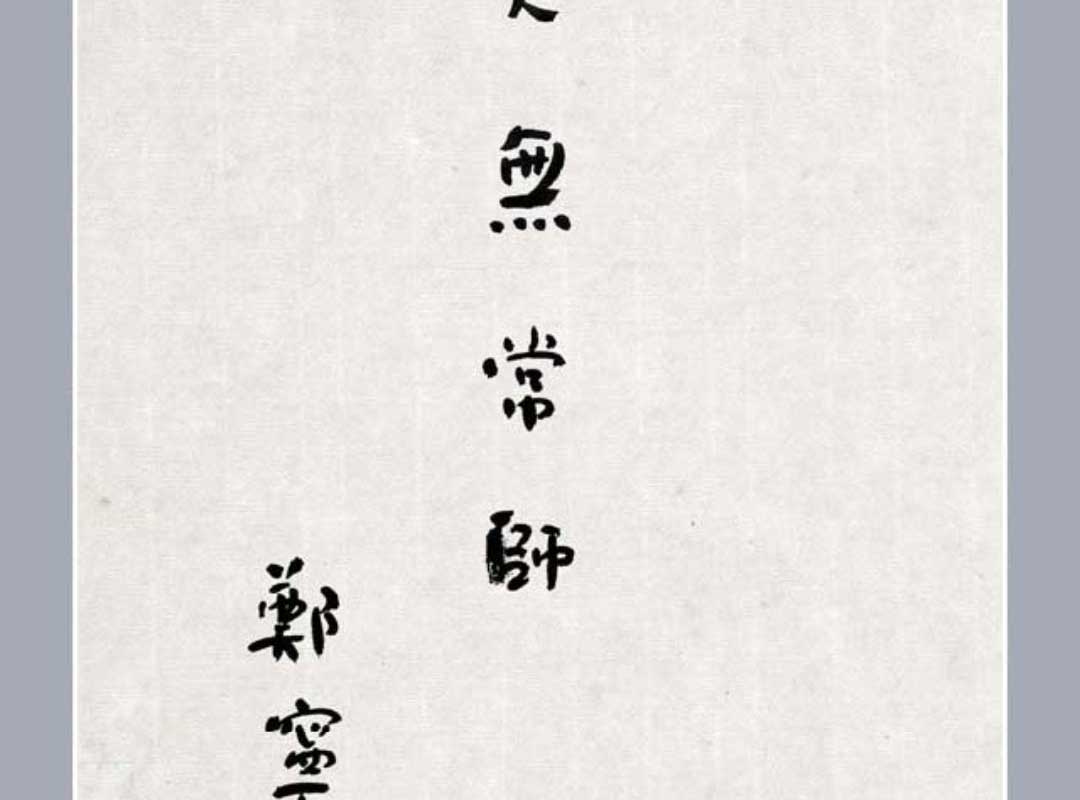 無常師
鄭寧